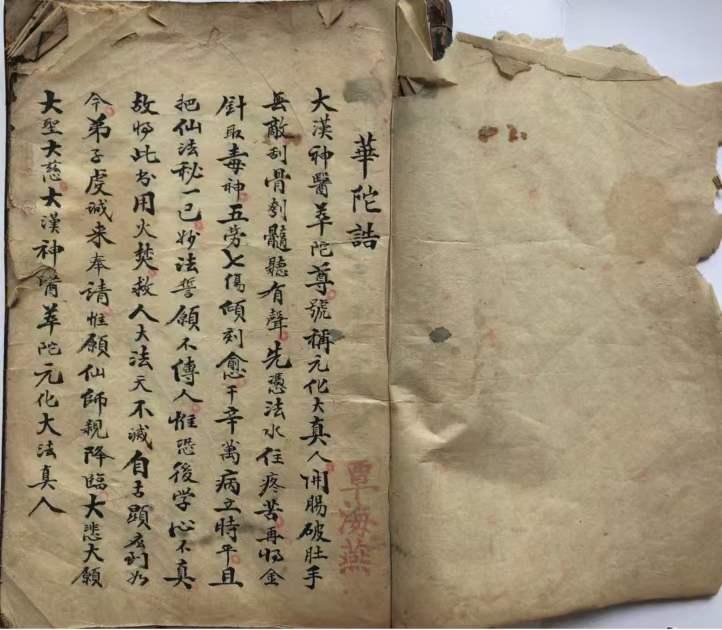 華陀誥
大漢神醫華陀尊號稱元化大真人開腸破肚手
無敵刮骨刳髓聽有聲先憑法水住疼苦再将金
針取毒神五劳七傷傾刻愈千辛萬病立時平且
把仙法秘一已妙法誓願不傳人惟恐後学心不真
故将此書用火焚救人大法天不滅自古顕应到如
今弟子虔誠来奉請惟願仙師親降臨大悲大願
大聖大慈大漢神醫華陀元化大法真人
覃海燕